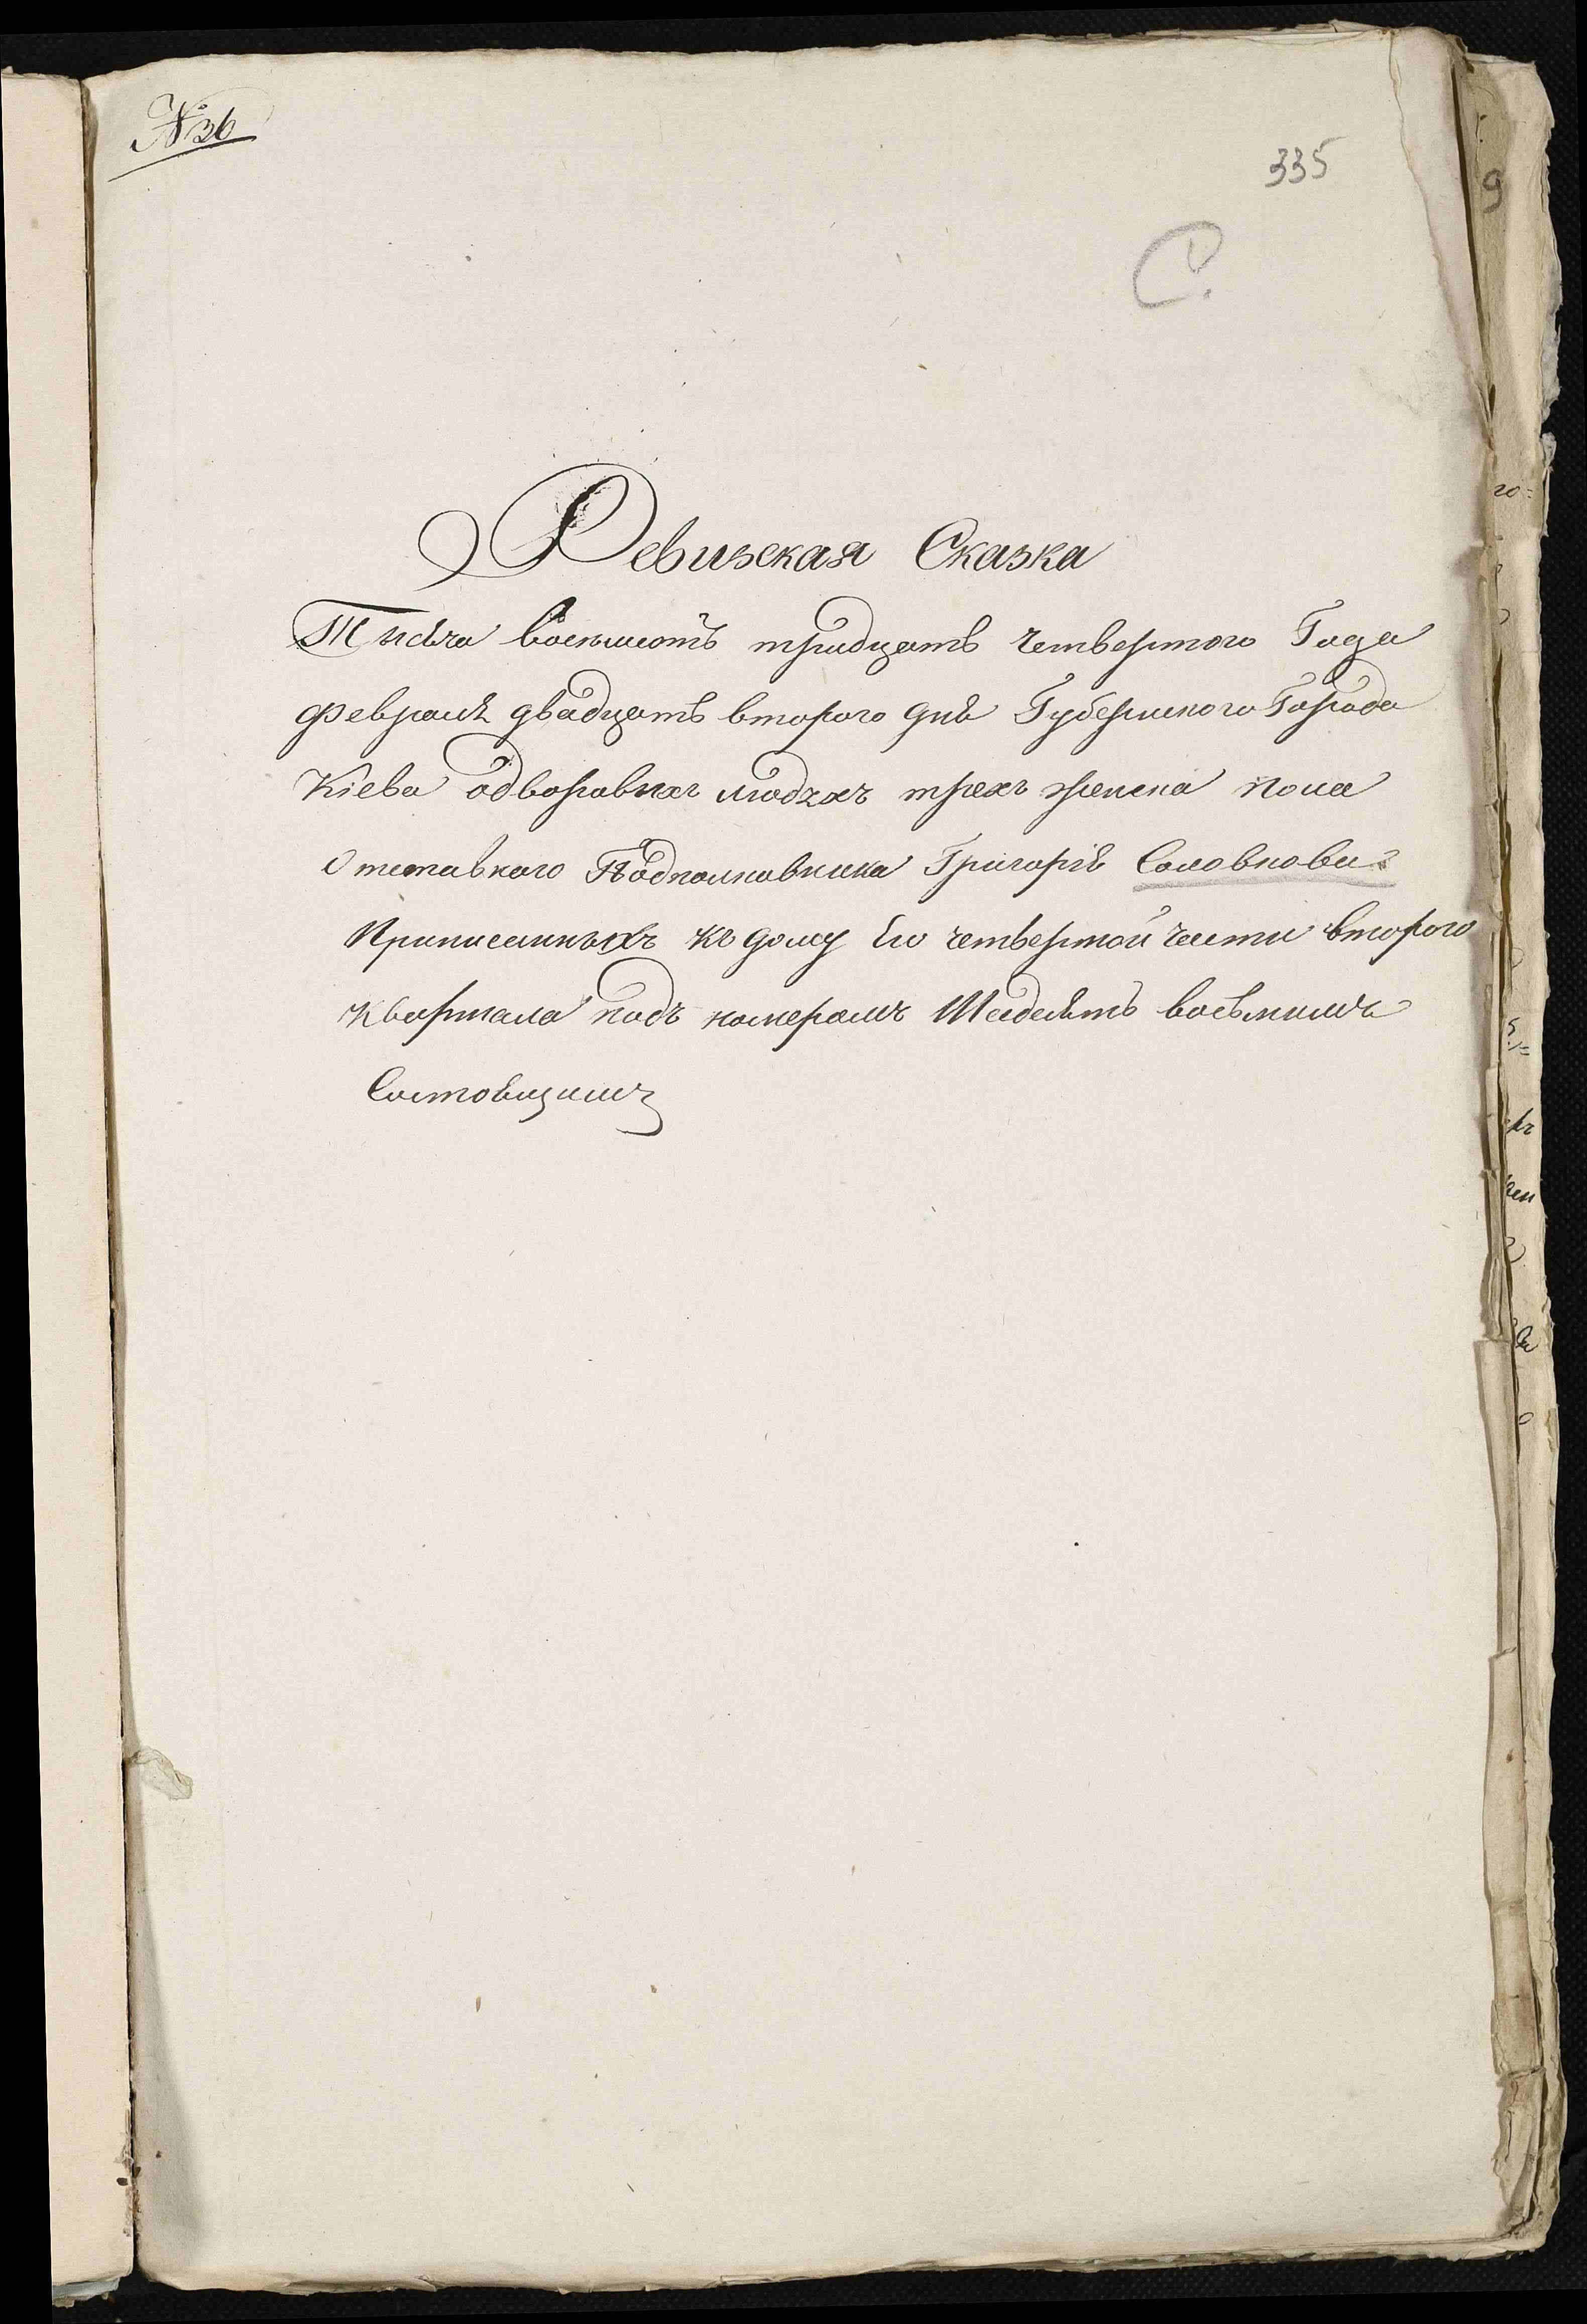 №36
335
С.
Ревизская Сказка
Тысеча восемьсотъ тридцать четвертого Года
февраля двадцать второго дня Губернского Города
Кіева одворовыхъ людяхъ трехъ женска пола
Отставного Подполковника Григорія Соловкова
Приписанныхъ къ дому Его четвертой части второго
квартала подъ номеромъ Шесдесятъ восьмымъ
Состоящимъ